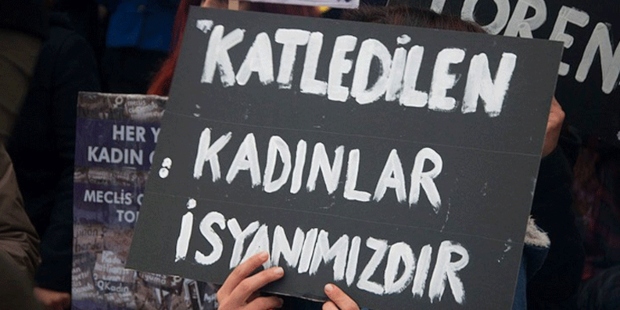 KATLEDİLEN
KADINLAR
İSYANIMIZDIR
HER
KADIN
MECLİS
TÖREN